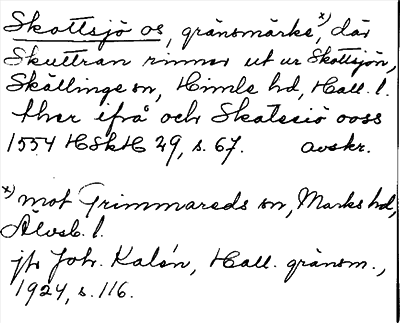 Skottsjö os, gränsmärke, x) där
Skuttran rinner ut ur Skottsjön,
Skällinge sn, Himle hd, Hall. l.
ther ifrå och Skatzsiö ooss
1554 HSkH 29, s. 67. avskr.
x) mot Grimmareds sn, Marks hd,
Älvsb. l.
jfr Joh. Kalén, Hall. gränsm.,
1924, s. 116.